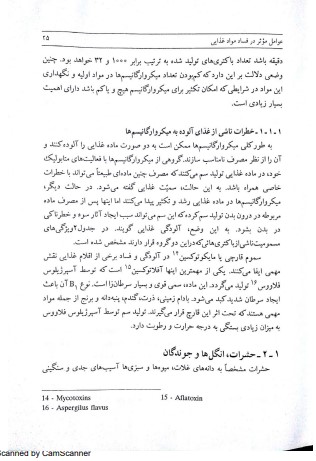 عوامل مؤثر در فساد مواد غذایی ۲۵
دقیقه باشد تعداد باکتری‌های تولید شده به ترتیب برابر ۱۰۰۰ و ۳۲ خواهد بود. چنین
وضعی دلالت بر این دارد که کم‌بودن تعداد میکروارگانیسم‌ها در مواد اولیه و نگهداری
این مواد در شرایطی که امکان تکثیر برای میکروارگانیسم هیچ و یا کم باشد دارای اهمیت
بسیار زیادی است.
۱-۱-۱- خطرات ناشی از غذای آلوده به میکروارگانیزم‌ها
به طور کلی میکروارگانیسم‌ها ممکن است به دو صورت ماده غذایی را آلوده کنند و
آن را از نظر مصرف نامناسب سازند. گروهی از میکروارگانیسم‌ها با فعالیت‌های متابولیک
خود، در ماده غذایی تولید سم می‌کنند که مصرف چنین ماده‌ای طبیعتاً می‌تواند با خطرات
خاصی همراه باشد. به این حالت، سمیّت غذایی گفته می‌شود. در حالت دیگر،
میکروارگانیسم‌ها در ماده غذایی رشد و تکثیر پیدا می‌کنند اما اینها پس از مصرف ماده
مربوطه در درون بدن تولید سم کرده که این سم می‌تواند سبب ایجاد آثار سوء و خطرناکی
در بدن بشود. به این وضع، آلودگی غذایی گویند. در جدول ۲ ویژگی‌های
مسمومیت ناشی از باکتری‌هائی که در این دو گروه قرار دارند مشخص شده است.
سموم قارچی یا مایکوتوکسین ۱۴ در آلودگی و فساد برخی از اقلام غذایی نقش
مهمی ایفا می‌کنند. یکی از مهمترین اینها آفلاتوکسین ۱۵ است که توسط آسپرژیلوس
فلاووس ۱۶ تولید می‌گردد. این ماده، سمی قوی و بسیار سرطان‌زا است. نوع B₁ آن باعث
ایجاد سرطان شدید کبد می‌شود. بادام زمینی، ذرت، گندم، پنبه‌دانه و برنج از جمله مواد
مهمی هستند که تحت اثر این قارچ قرار می‌گیرند. تولید سم توسط آسپرژیلوس فلاووس
به میزان زیادی بستگی به درجه حرارت و رطوبت دارد.
۱-۲- حشرات، انگل‌ها و جوندگان
حشرات مشخصاً به دانه‌های غلات، میوه‌ها و سبزی‌ها آسیب‌های جدی و سنگینی
14 - Mycotoxins 15 - Aflatoxin
16 - Aspergilus flavus
Scanned by CamScanner